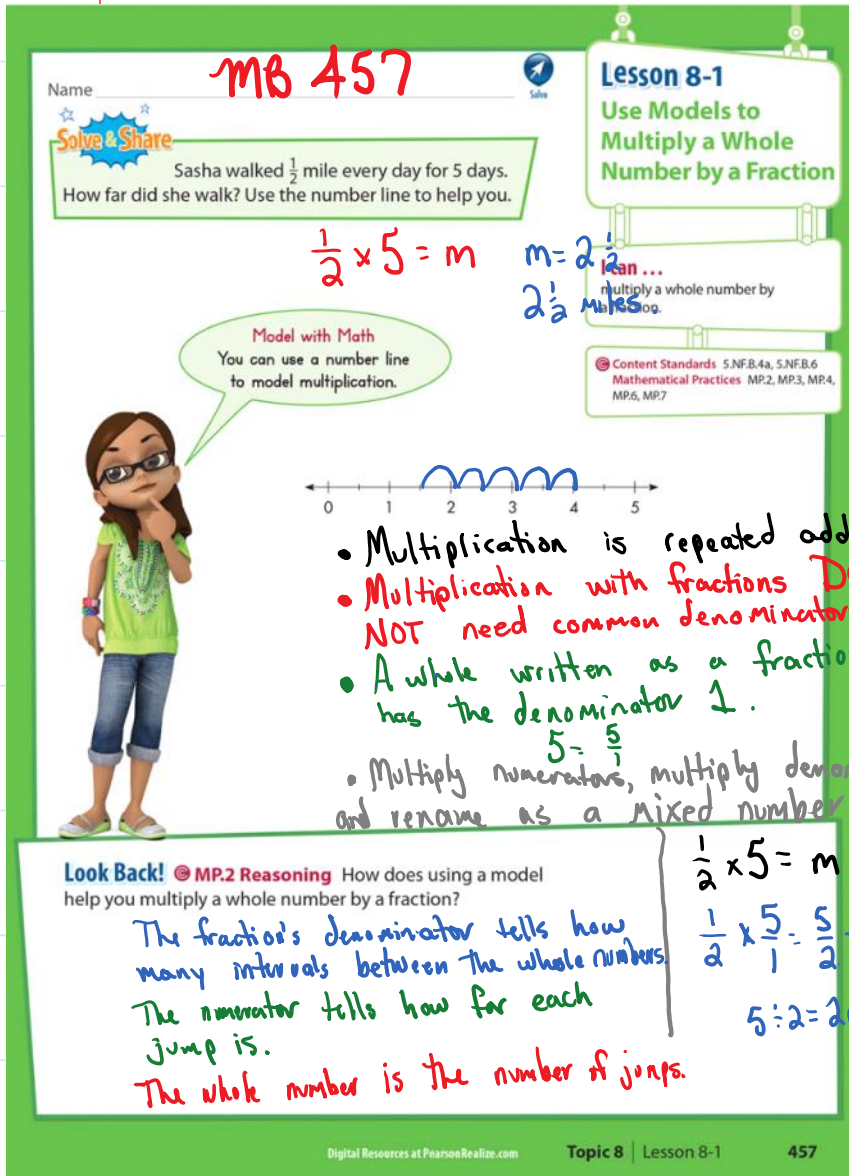 MB 457
Name
Solve
Solve & Share
Sasha walked 1/2 mile every day for 5 days.
How far did she walk? Use the number line to help you.
Lesson 8-1
Use Models to
Multiply a Whole
Number by a Fraction
1/2 × 5 = m
m = 2 1/2
2 1/2 miles.
I can ...
multiply a whole number by
a fraction.
Content Standards 5.NF.B.4a, 5.NF.B.6
Mathematical Practices MP.2, MP.3, MP.4,
MP.6, MP.7
Model with Math
You can use a number line
to model multiplication.
0 1 2 3 4 5
• Multiplication is repeated add
• Multiplication with fractions D
NOT need common denominator
• A whole written as a fractio
has the denominator 1.
5 = 5/1
• Multiply numerators, multiply deno
and rename as a mixed number
Look Back! MP.2 Reasoning How does using a model
help you multiply a whole number by a fraction?
The fraction's denominator tells how
many intervals between the whole numbers.
The numerator tells how far each
jump is.
The whole number is the number of jumps.
1/2 × 5 = m
1/2 × 5/1 = 5/2
5 ÷ 2 = 2
Digital Resources at PearsonRealize.com
Topic 8 | Lesson 8-1
457